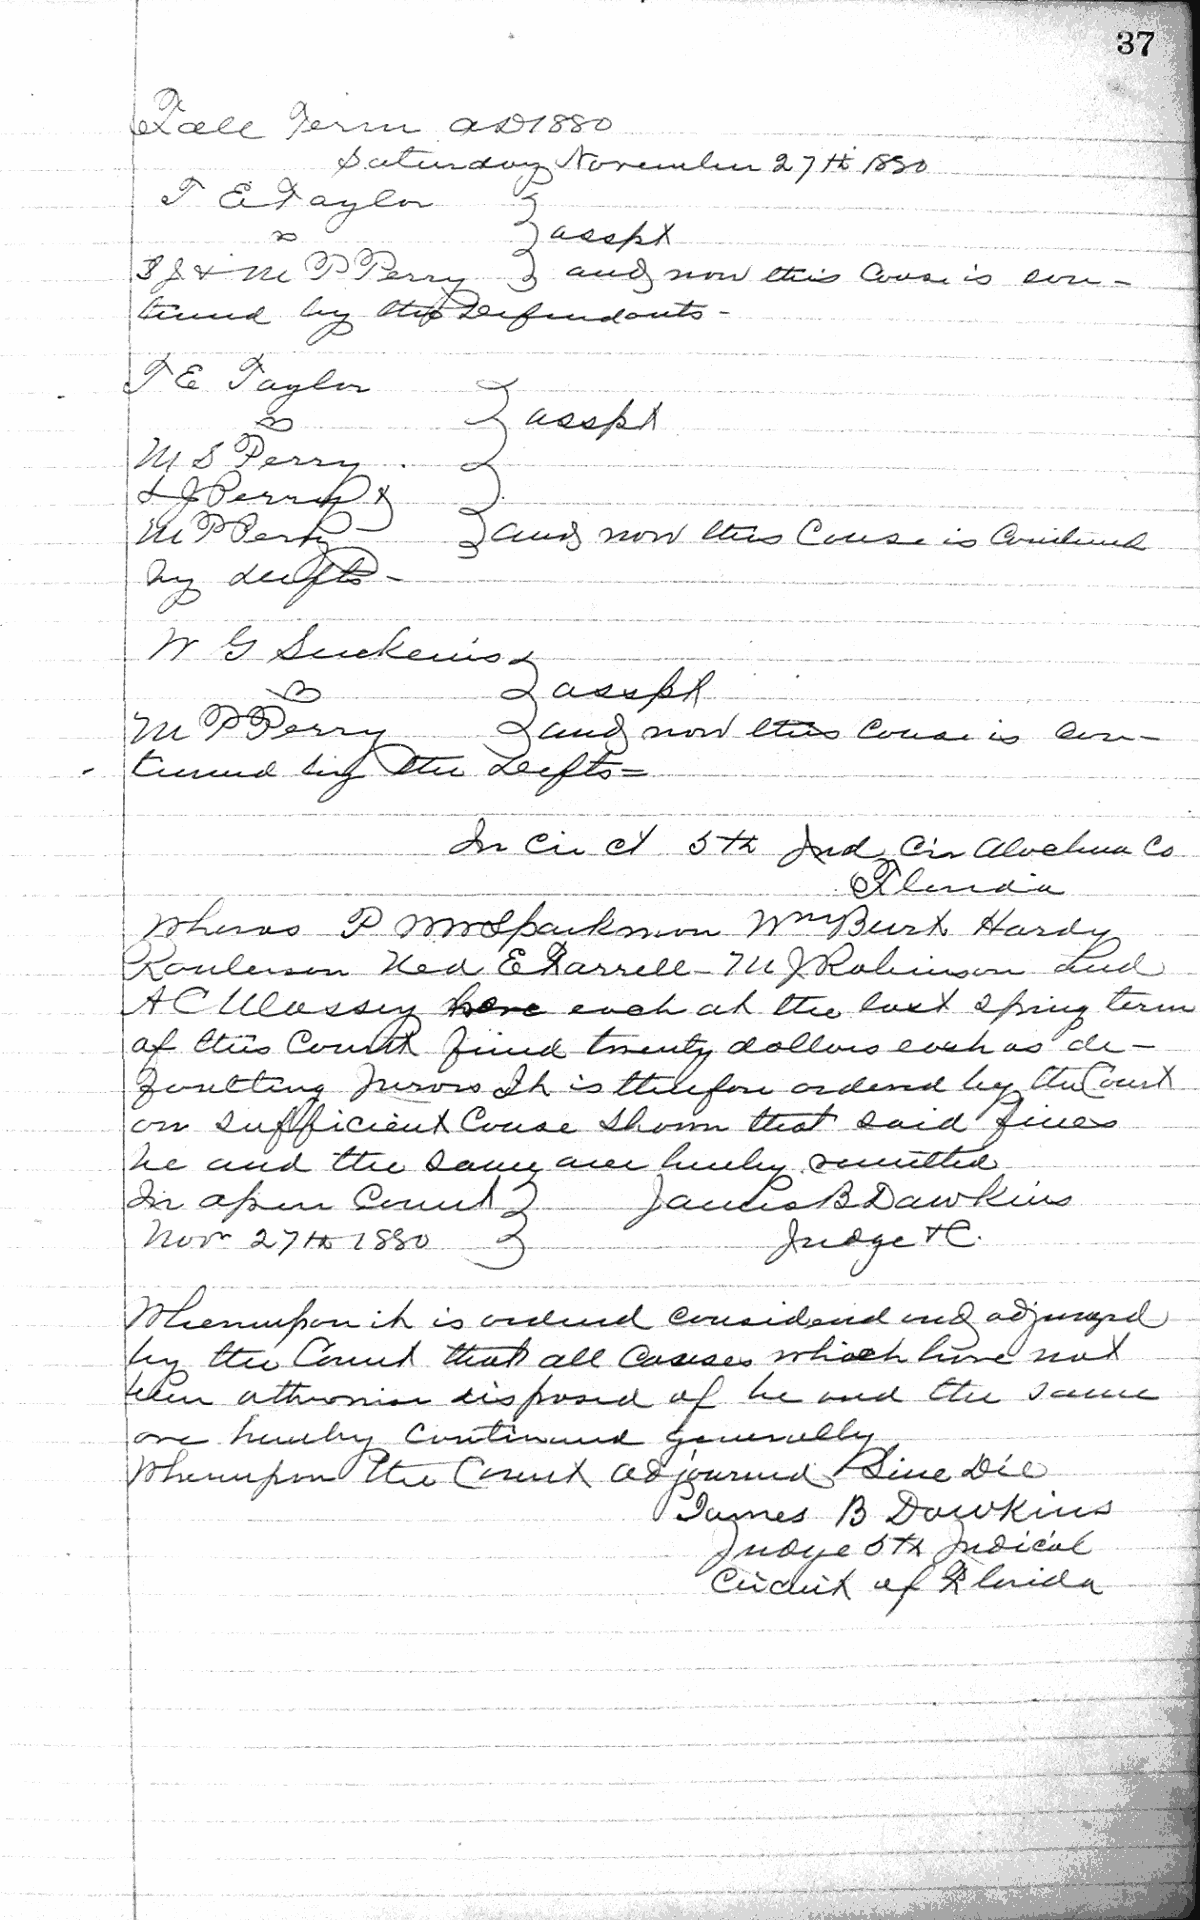 37
Fall Term AD 1880
Saturday November 27th 1880
T E Taylor
vs } asspt
& M P Perry } and now this Cause is con-
tinued by the Defendants -
T E Taylor
vs } asspt
M S Perry
& J Perry &
M P Perry } and now this Cause is Continued
by defts -
W G
vs } asspt
M P Perry } and now this Cause is con-
tinued by the Defts =
In Cir Ct 5th Jud Cir Alachua Co
Florida
Wheras P Wm Sparkman Wm Burt Hardy
Roulerson Ned E Farrell - M J Robinson and
A C Massey have each at the last Spring term
of this Court fined twenty dollars each as de-
faulting Jurors It is therefore ordered by the Court
on sufficient Cause Shown that said fines
be and the same are hereby remitted
In open Court } James B Dawkins
Novr 27th 1880 } Judge &C.
Whereupon it is ordered considered and adjudged
by the Court that all Causes which have not
been otherwise disposed of be and the same
are hereby Continued generally
Whereupon the Court adjourned Sine Die
James B Dawkins
Judge 5th Judicial
Circuit of Florida